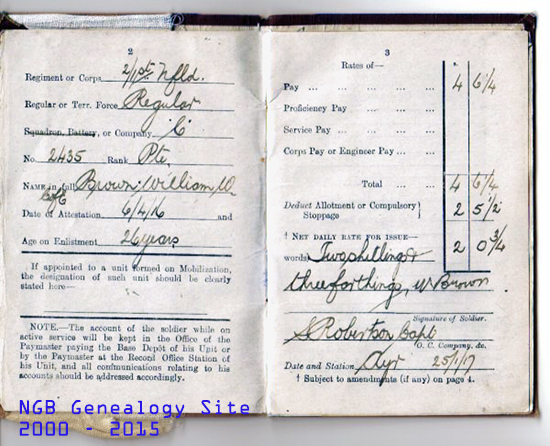 2
Regiment or Corps 2/1st Nfld.
Regular or Terr. Force Regular
Squadron, Battery, or Company C
No. 2435 Rank Pte.
NAME in full Brown, William, W.
C of E
Date of Attestation 6/4/16 and
Age on Enlistment 26 years
If appointed to a unit formed on Mobilization,
the designation of such unit should be clearly
stated here—
NOTE.—The account of the soldier while on
active service will be kept in the Office of the
Paymaster paying the Base Depôt of his Unit or
by the Paymaster at the Record Office Station of
his Unit, and all communications relating to his
accounts should be addressed accordingly.
3
Rates of—
Pay ... ... ... ... ... 4 6 1/4
Proficiency Pay ... ... ...
Service Pay ... ... ...
Corps Pay or Engineer Pay ... ...
Total ... ... 4 6 1/4
Deduct Allotment or Compulsory } 2 5 1/2
Stoppage
† NET DAILY RATE FOR ISSUE— 2 0 3/4
words) Two shillings &
three farthings, W Brown
Signature of Soldier.
S Robertson Capt
O. C. Company, &c.
Date and Station Ayr 25/1/17
† Subject to amendments (if any) on page 4.
NGB Genealogy Site
2000 - 2015